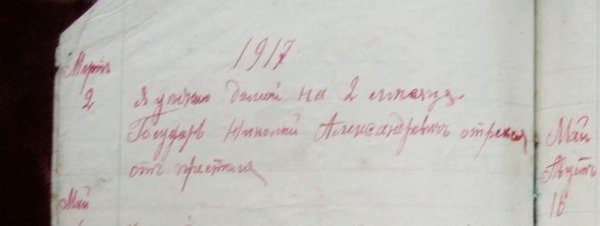 1917.
Мартъ
2 я уѣхалъ домой на 2 мѣсяца.
Государь Николай Александровичъ отрекся
отъ престола
Май
Май
Августъ
16